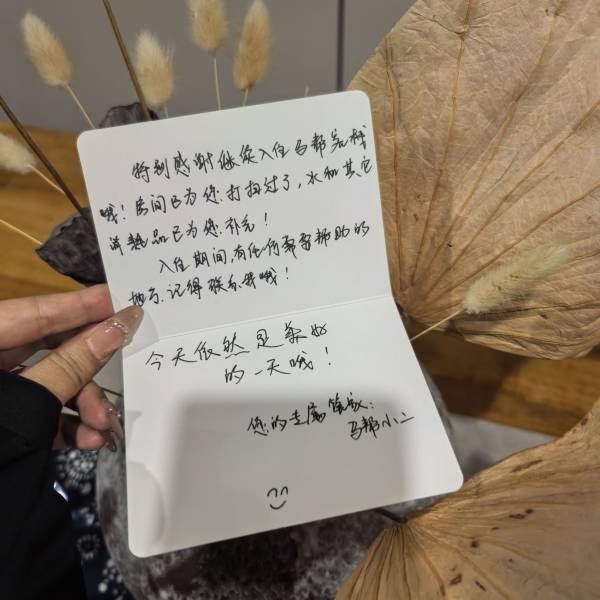 特别感谢继续入住马帮客栈
哦！房间已为您打扫过了，水和其它
消耗品已为您补充！
入住期间，有任何需要帮助的
地方，记得联系我哦！
今天依然是美好
的一天哦！
您的专属管家：
马帮小二